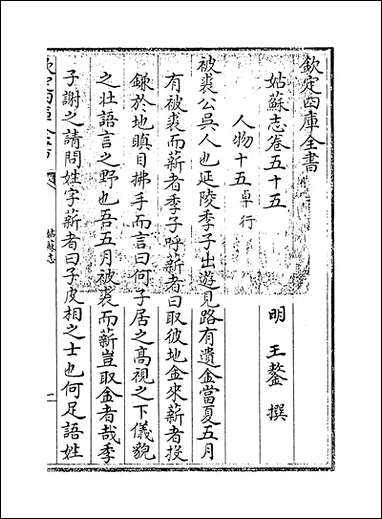 欽定四庫全書
姑蘇志卷五十五
明 王鏊 撰
人物十五卓行
被裘公吳人也延陵季子出遊見路有遺金當夏五月
有被裘而薪者季子呼薪者曰取彼地金來薪者投
鐮於地瞋目拂手而言曰何子居之高視之下儀貌
之壯語言之野也吾五月被裘而薪豈取金者哉季
子謝之請問姓字薪者曰子皮相之士也何足語姓
姑蘇志
一